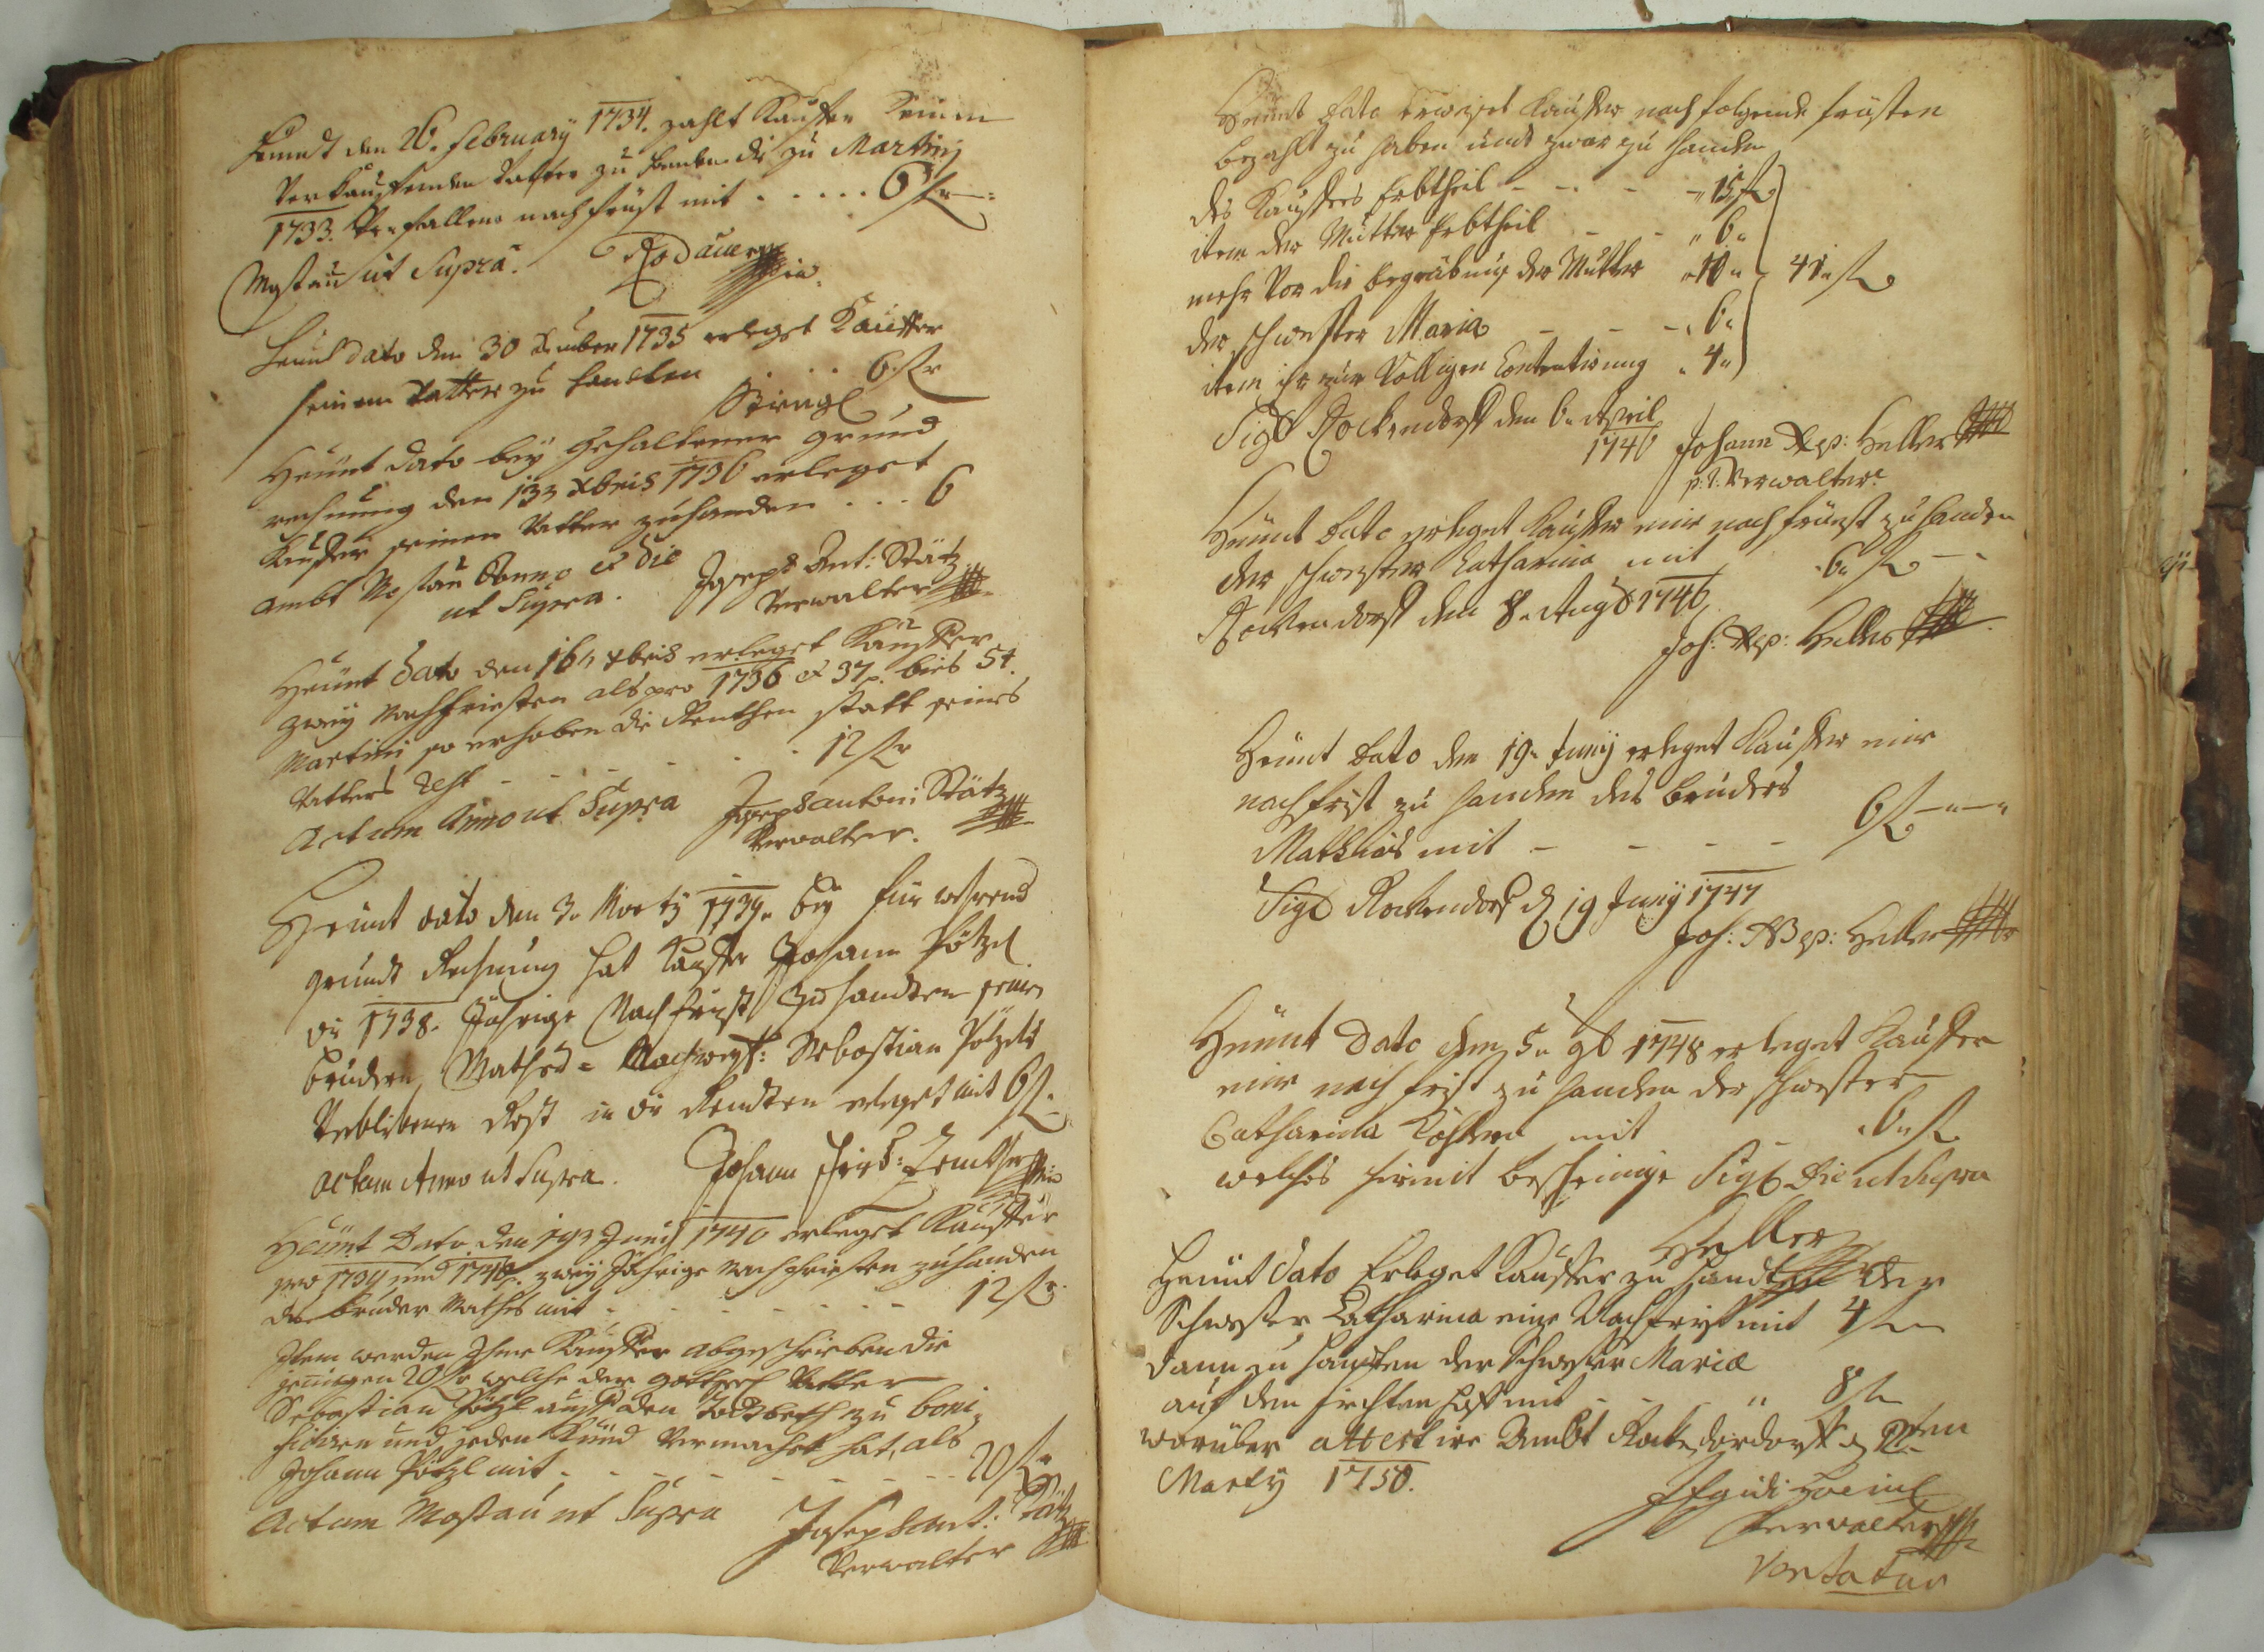 Heundt den 26. February 1734. zahlt Kauffer seinem
Verkauffenden Vatter zu handen die zu Martiny
1733. Verfallene nachfrist mit . . . . . 6 fl
Mostau ut Supra.
Heunt dato den 30 1735 erleget Kauffer
seinem Vatter zu handen . . . 6 fl
Heünt dato bey gehaltener grund
rechnung den 13n Xbris 1736 erleget
Kauffer seinen Vatter zuhanden . . . 6
Ambt Mostau Anno et die
ut Supra. Joseph Ant: Stätz
Verwalter
Heünt dato den 16n Xbris erleget Kauffer
zwey Nachfristen als pro 1736 et 37
Martini so erhoben die Renthen statt seines
Vatters Rest - - - - - 12 fl
Actum Anno ut Supra Joseph Antoni Stätz
Verwalter.
Heunt dato den 3n Martz 1739n bey fürwehrend
grundt Rechnung hat Kauffer Johann Pötzl
die 1738. Jährige Nachfrist zu handten seines
bruders Mathes Sebastian Pötzels
Verblibenen Rest in die Rendten erleget mit 6 fl.
Actum Anno ut Supra. Johann
Heünt Dato den 19n Junij 1740 erleget Kauffer
pro 1739 und 1740. zwey Jährige nachfristen zuhanden
des bruder Mathes mit - - - - - 12 fl
Item werden Ihme Kauffer abgeschrieben die
jenigen 20 fl welche der Vatter
Sebastian Pötzl auff den Todtbeth zu boni-
ficiren und jeden Kind Vermachet hat, als
Johann Pötzl mit - - - - - 20 fl
Actum Mostau ut Supra Joseph Ant: Stätz
Verwalter
Heünt dato erweiset Kauffer nach folgende fristen
bezahlt zu haben undt zwar zu handen
des Kauffers Erbtheil - - - 15 fl
item der Mutter Erbtheil - - 6
mehr Vor die begräbnus der Mutter 10 41 fl
der schwester Maria - - - 6
item ihr zur Völligen Contentirung 4
Sigl Rockendorff den 6n April
1746 Johann Nep: Heller
p: t: Verwalter
Heünt dato erleget Kauffer eine nachfrist zu handen
der schwester Catharina mit 6 fl
Rockendorff den 8n Augt 1746
Joh: Nep: Heller
Heünt dato den 19n Junij erleget Kauffer eine
nachfrist zu handen des bruders
Mathias mit - - - - 6 fl
Sigl Rockendorff d 19 Junij 1747
Joh: Nep: Heller
Heünt Dato den 5n 9b 1748 erleget Kauffer
eine nachfrist zu handen der schwester
Catharina mit - 6 fl
welches hiemit bescheinige Sigl die ut Supra
Heller
Heunt dato Erleget Kauffer zu handten der
Schwester Catharina eine Nachfrist mit 4 fl
dann zu handten der Schwester Mariæ
auf den mit - - 8 fl
worüber attestire Ambt Rockendorff d 2ten
Marty 1750.
Verwalter